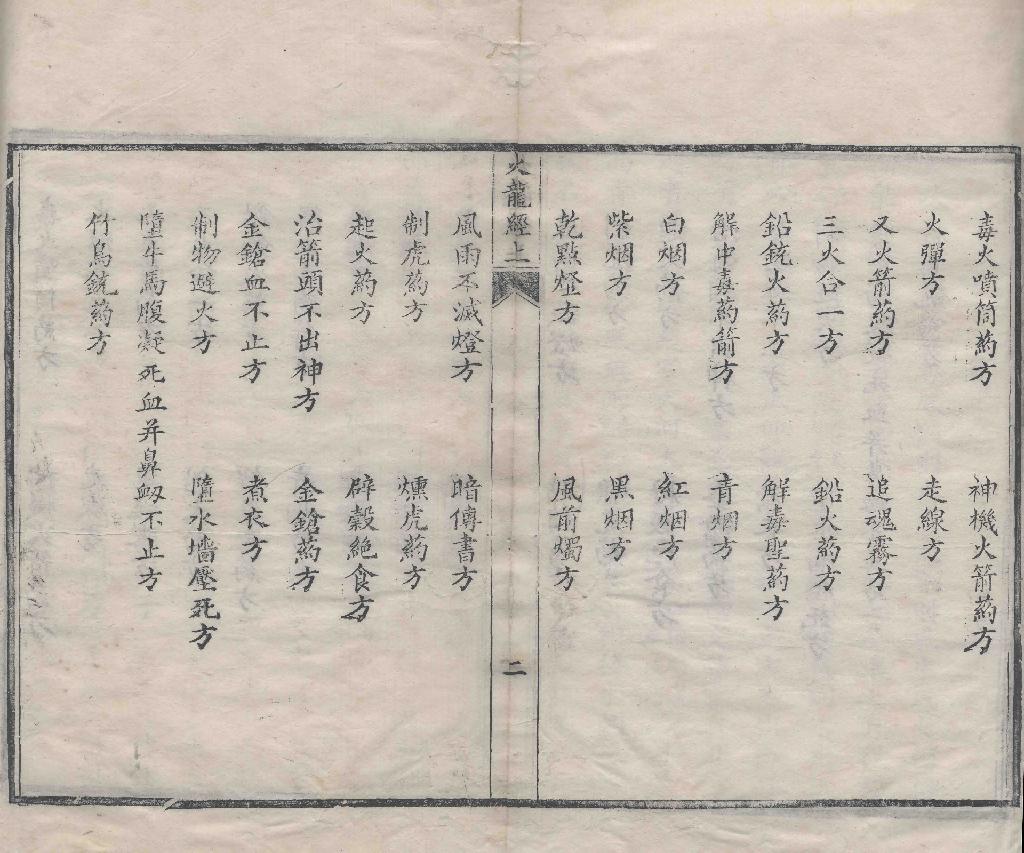 毒火噴筒葯方 神機火箭葯方
火彈方 走線方
又火箭葯方 追魂霧方
三火合一方 鉛火葯方
鉛銃火葯方 解毒聖葯方
解中毒葯箭方 青烟方
白烟方 紅烟方
紫烟方 黑烟方
乾點燈方 風前燭方
火龍經上
二
風雨不滅燈方 暗傳書方
制虎葯方 燻虎葯方
起火葯方 辟穀絶食方
治箭頭不出神方 金鎗葯方
金鎗血不止方 煮衣方
制物避火方 隋水墻壓死方
墮牛馬腹凝死血并鼻衂不止方
竹鳥銃葯方